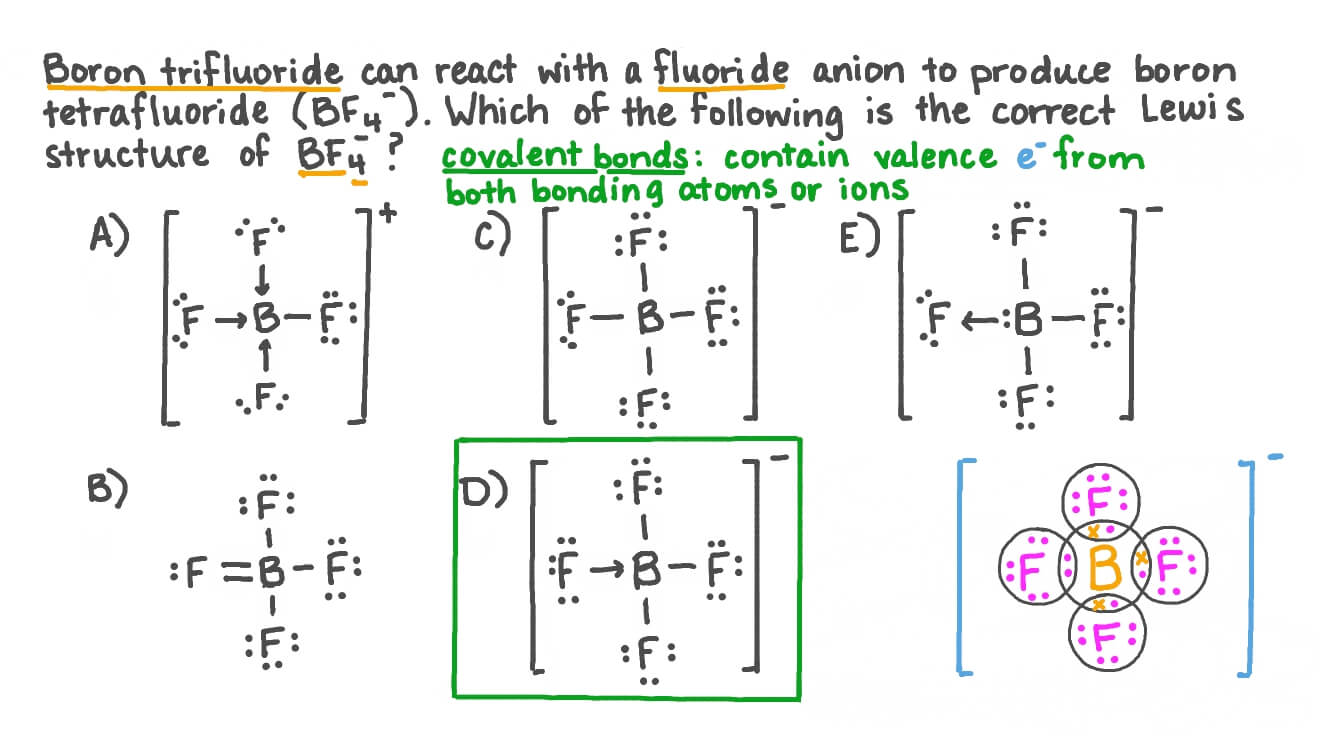 Boron trifluoride can react with a fluoride anion to produce boron
tetrafluoride (BF₄⁻). Which of the following is the correct Lewis
structure of BF₄⁻? covalent bonds: contain valence e⁻ from
both bonding atoms or ions
A) [ ]⁺
F
F → B – F
F
C) [ ]⁻
F
F – B – F
F
E) [ ]⁻
F
F ← :B – F
F
B)
F
F = B – F
F
D) [ ]⁻
F
F → B – F
F
[ ]⁻
F
F B F
F